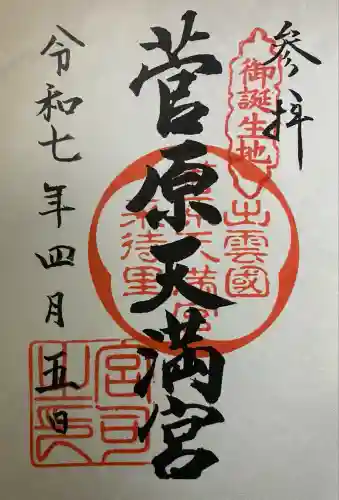 参拝
御誕生地
菅原天満宮
出雲國
菅原天満宮
来待里
令和七年四月五日
宮司之印